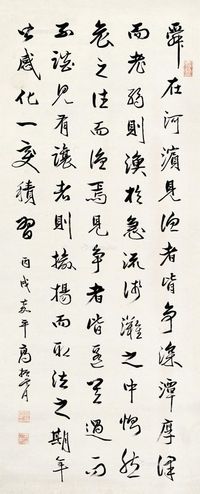 舜在河濱見漁者皆爭深潭厚澤
而老弱則漁於急流淺灘之中惻然
哀之往而漁焉見爭者皆匿其過而
不談見有讓者則揄揚而取法之期年
皆感化一變積習 丙戌嘉平高振霄